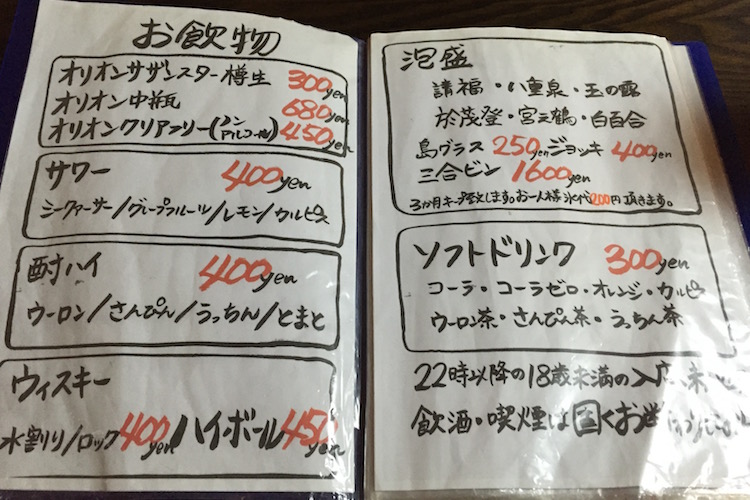 お飲物
オリオンサザンスター樽生 300yen
オリオン中瓶 680yen
オリオンクリアフリー(ノンアルコール) 450yen
サワー 400yen
シークァーサー/グレープフルーツ/レモン/カルピス
酎ハイ 400yen
ウーロン/さんぴん/うっちん/とまと
ウィスキー
水割り/ロック400yen/ハイ・ボール450yen
泡盛
請福・八重泉・玉の露
於茂登・宮之鶴・白百合
島グラス 250yen ジョッキ 400yen
三合ビン 1600yen
3か月キープ致します。お一人様 氷代200円 頂きます。
ソフトドリンク 300yen
コーラ・コーラゼロ・オレンジ・カルピ
ウーロン茶・さんぴん茶・うっちん茶
22時以降の18歳未満の入店
飲酒・喫煙は固くお断わり